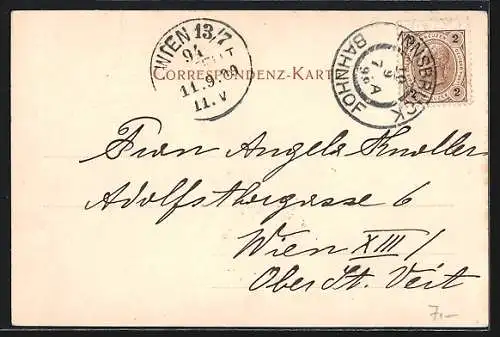 WIEN 13/7
94
11.9.99
11.V
CORRESPONDENZ-KART
INNSBRUCK
10
9
7 A
99
BAHNHOF
2 2
Frau Angela Knoller
Adolfstorgasse 6
Wien XIII/
Ober St. Veit
7.-